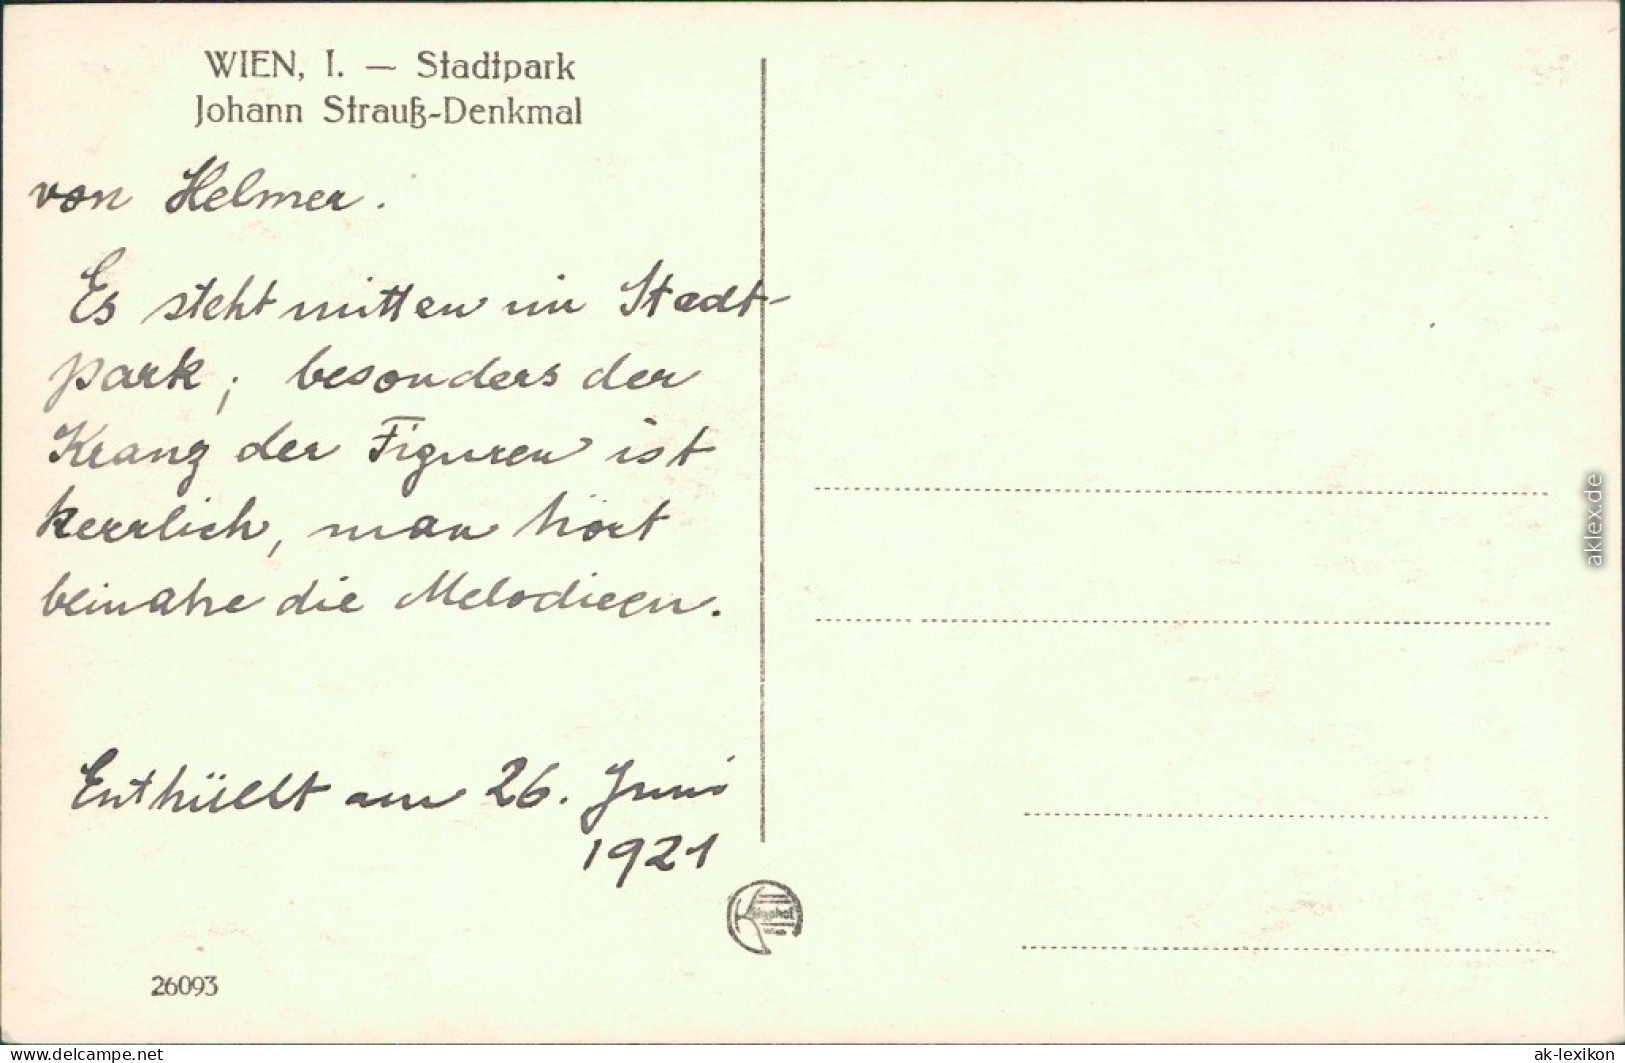 WIEN, I. — Stadtpark
Johann Strauß-Denkmal
von Helmer.
Es steht mitten im Stadt-
park; besonders der
Kranz der Figuren ist
herrlich, man hört
beinahe die Melodieen.
Enthüllt am 26. Juni
1921
Wien
26093
aklex.de
www.delcampe.net
ak-lexikon